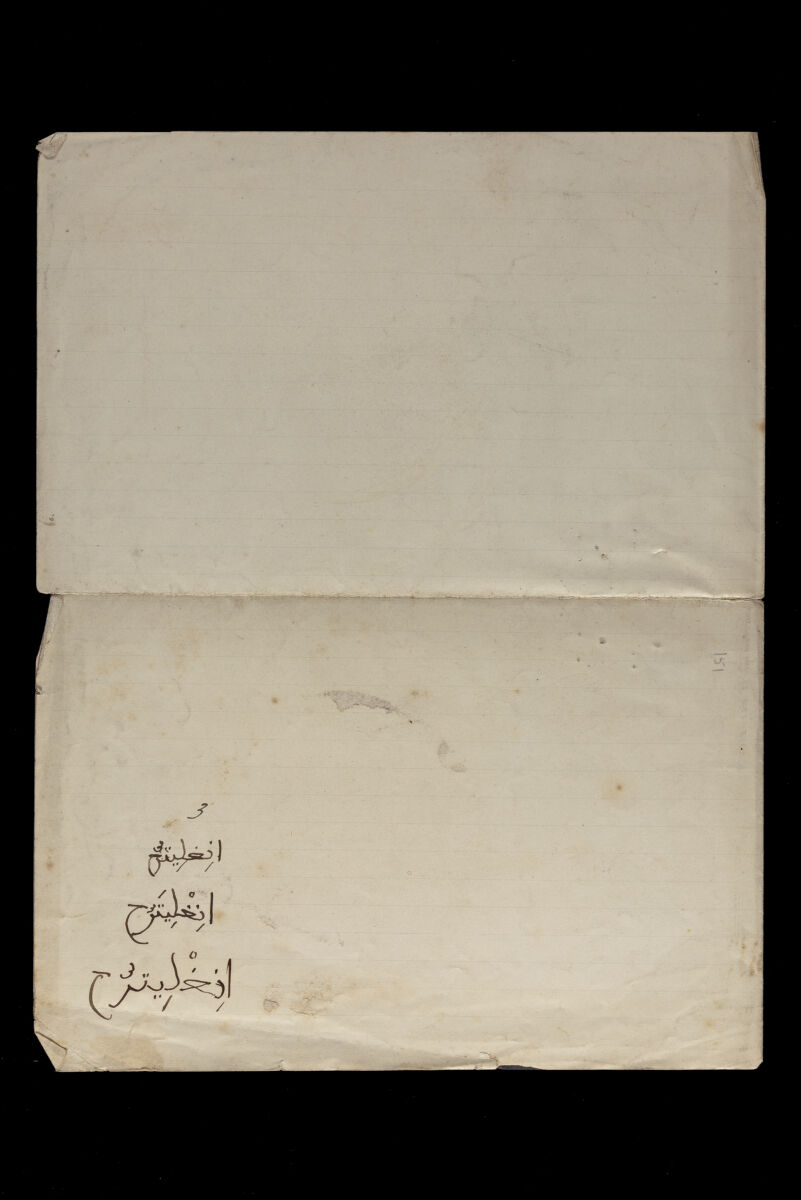 151
3
انغليترح
اِنغْلِيتَرُح
اِنغْلِيتَرُح